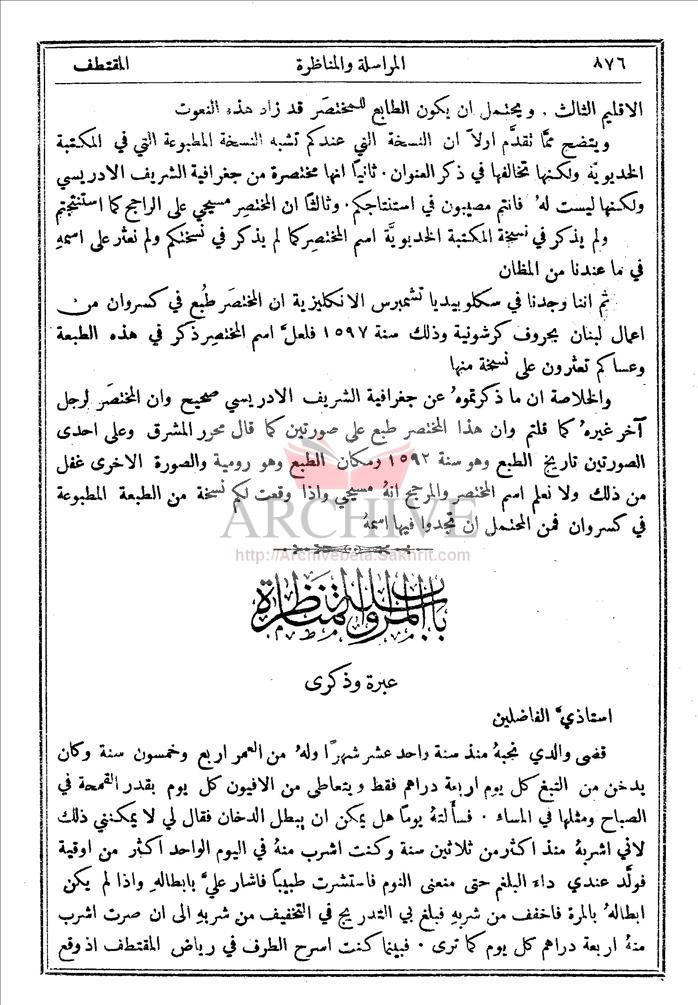 ٨٧٦
المراسلة والمناظرة
المقتطف
الاقليم الثالث . ويحتمل ان يكون الطابع للمختصَر قد زاد هذه النعوت
ويتضح ممَّا نقدَّم اولاً ان النسخة التي عندكم تشبه النسخة المطبوعة التي في المكتبة
الخديويَّة ولكنها تخالفها في ذكر العنوان . ثانياً انها مختصرة من جغرافية الشريف الادريسي
ولكنها ليست لهُ فانتم مصيبون في استنتاجكم . وثالثاً ان المختصِر مسيحي على الراجح كما استنتجتم
ولم يذكر في نسخة المكتبة الخديويَّة اسم المختصِر كما لم يذكر في نسختكم ولم نعثر على اسمهِ
في ما عندنا من المظان
ثم اننا وجدنا في سكلوبيديا تشمبرس الانكليزية ان المختصَر طُبع في كسروان من
اعمال لبنان بحروف كرشونية وذلك سنة ١٥٩٧ فلعلَّ اسم المختصِر ذكر في هذه الطبعة
وعساكم تعثرون على نسخة منها
والخلاصة ان ما ذكرتموهُ عن جغرافية الشريف الادريسي صحيح وان المختصَر لرجل
آخر غيرهُ كما قلتم وان هذا المختصر طبع على صورتين كما قال محرر المشرق وعلى احدى
الصورتين تاريخ الطبع وهو سنة ١٥٩٢ ومكان الطبع وهو رومية والصورة الاخرى غفل
من ذلك ولا نعلم اسم المختصر والمرجح انهُ مسيحي واذا وقعت لكم نسخة من الطبعة المطبوعة
في كسروان فمن المحتمل ان تجدوا فيها اسمهُ
ARCHIVE
http://Archivebeta.Sakhrit.com
باب المراسلة والمناظرة
عبرة وذكرى
استاذيَّ الفاضلين
قضى والدي نحبهُ منذ سنة واحد عشر شهراً ولهُ من العمر اربع وخمسون سنة وكان
يدخن من التبغ كل يوم اربعة دراهم فقط ويتعاطى من الافيون كل يوم بقدر القمحة في
الصباح ومثلها في المساء . فسألتهُ يوماً هل يمكن ان يبطل الدخان فقال لي لا يمكنني ذلك
لاني اشربهُ منذ اكثر من ثلاثين سنة وكنت اشرب منهُ في اليوم الواحد اكثر من اوقية
فولَّد عندي داءَ البلغم حتى منعنى النوم فاستشرت طبيباً فاشار عليَّ بابطالهِ واذا لم يكن
ابطالهُ بالمرة فاخفف من شربهِ فبلغ بي التدريج في التخفيف من شربهِ الى ان صرت اشرب
منهُ اربعة دراهم كل يوم كما ترى . فبينما كنت اسرح الطرف في رياض المقتطف اذ وقع